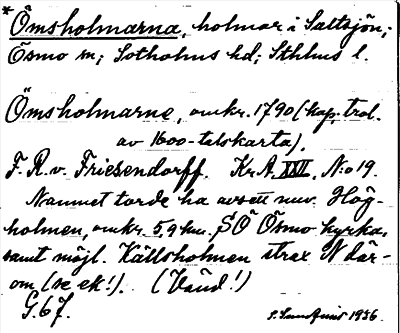 * Ömsholmarna, holmar i Saltsjön;
Ösmo sn; Sotholms hd; Sthlms l.
Ömsholmarne, omkr. 1790 (kop. trol.
av 1600-talskarta),
F. R. v. Friesendorff. Kr. A. XXVI, N:o 19.
Namnet torde ha avsett nuv. Hög-
holmen, omkr. 5,9 km. SÖ Ösmo kyrka,
samt möjl. Källsholmen strax N där-
om (se ek!). (Vänd!)
G. 67. 1936